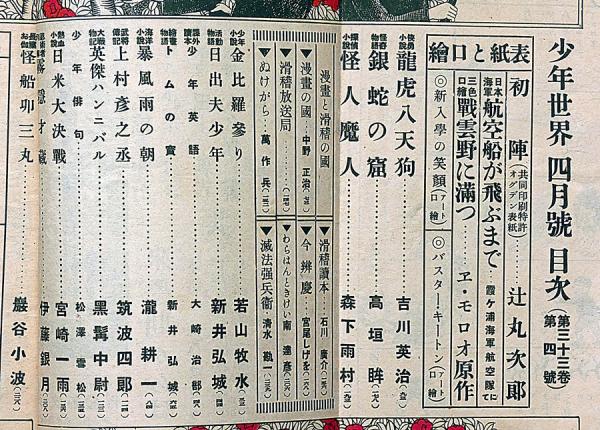 少年世界 四月號 目次（第三十三卷 第四號）
表紙と口繪
初陣（共同印刷特許 オグデン表紙）辻丸次郎
日本海軍 航空船が飛ぶまで 霞ケ浦海軍航空隊にて
三色口繪 戰雲野に滿つ ヱ・モロオ原作
◎新入學の笑顏（アート口繪）
◎バスター・キートン（アート口繪）
俠勇小說 龍虎八天狗 吉川英治
怪奇物語 銀蛇の窟 高垣眸
探偵小說 怪人魔人 森下雨村
漫畫と滑稽の國
▼漫畫の國 中野正治
▼滑稽放送局
▼ぬけがら 萬作兵
▼滑稽讀本 石川廣介
▼今辨慶 宮尾しげを
▼わらはんときけい 南達彥
▼減法强兵衞 清水勘一
少年小說 金比羅參り 若山牧水
活動物語 日出夫少年 新井弘城
課外讀本 少年英語 大崎治郎
繪書物語 トムの寶 新井弘城
海洋小說 暴風雨の朝 瀧耕一
武將傳記 上村彥之丞 筑波四郎
大戰物記 英傑ハンニバル 黑髯中尉
少年俳句 松澤雪松
熱血小說 日米大決戰 宮崎一雨
霧隱才藏 伊藤銀月
長篇お伽 怪船卯三丸 巖谷小波